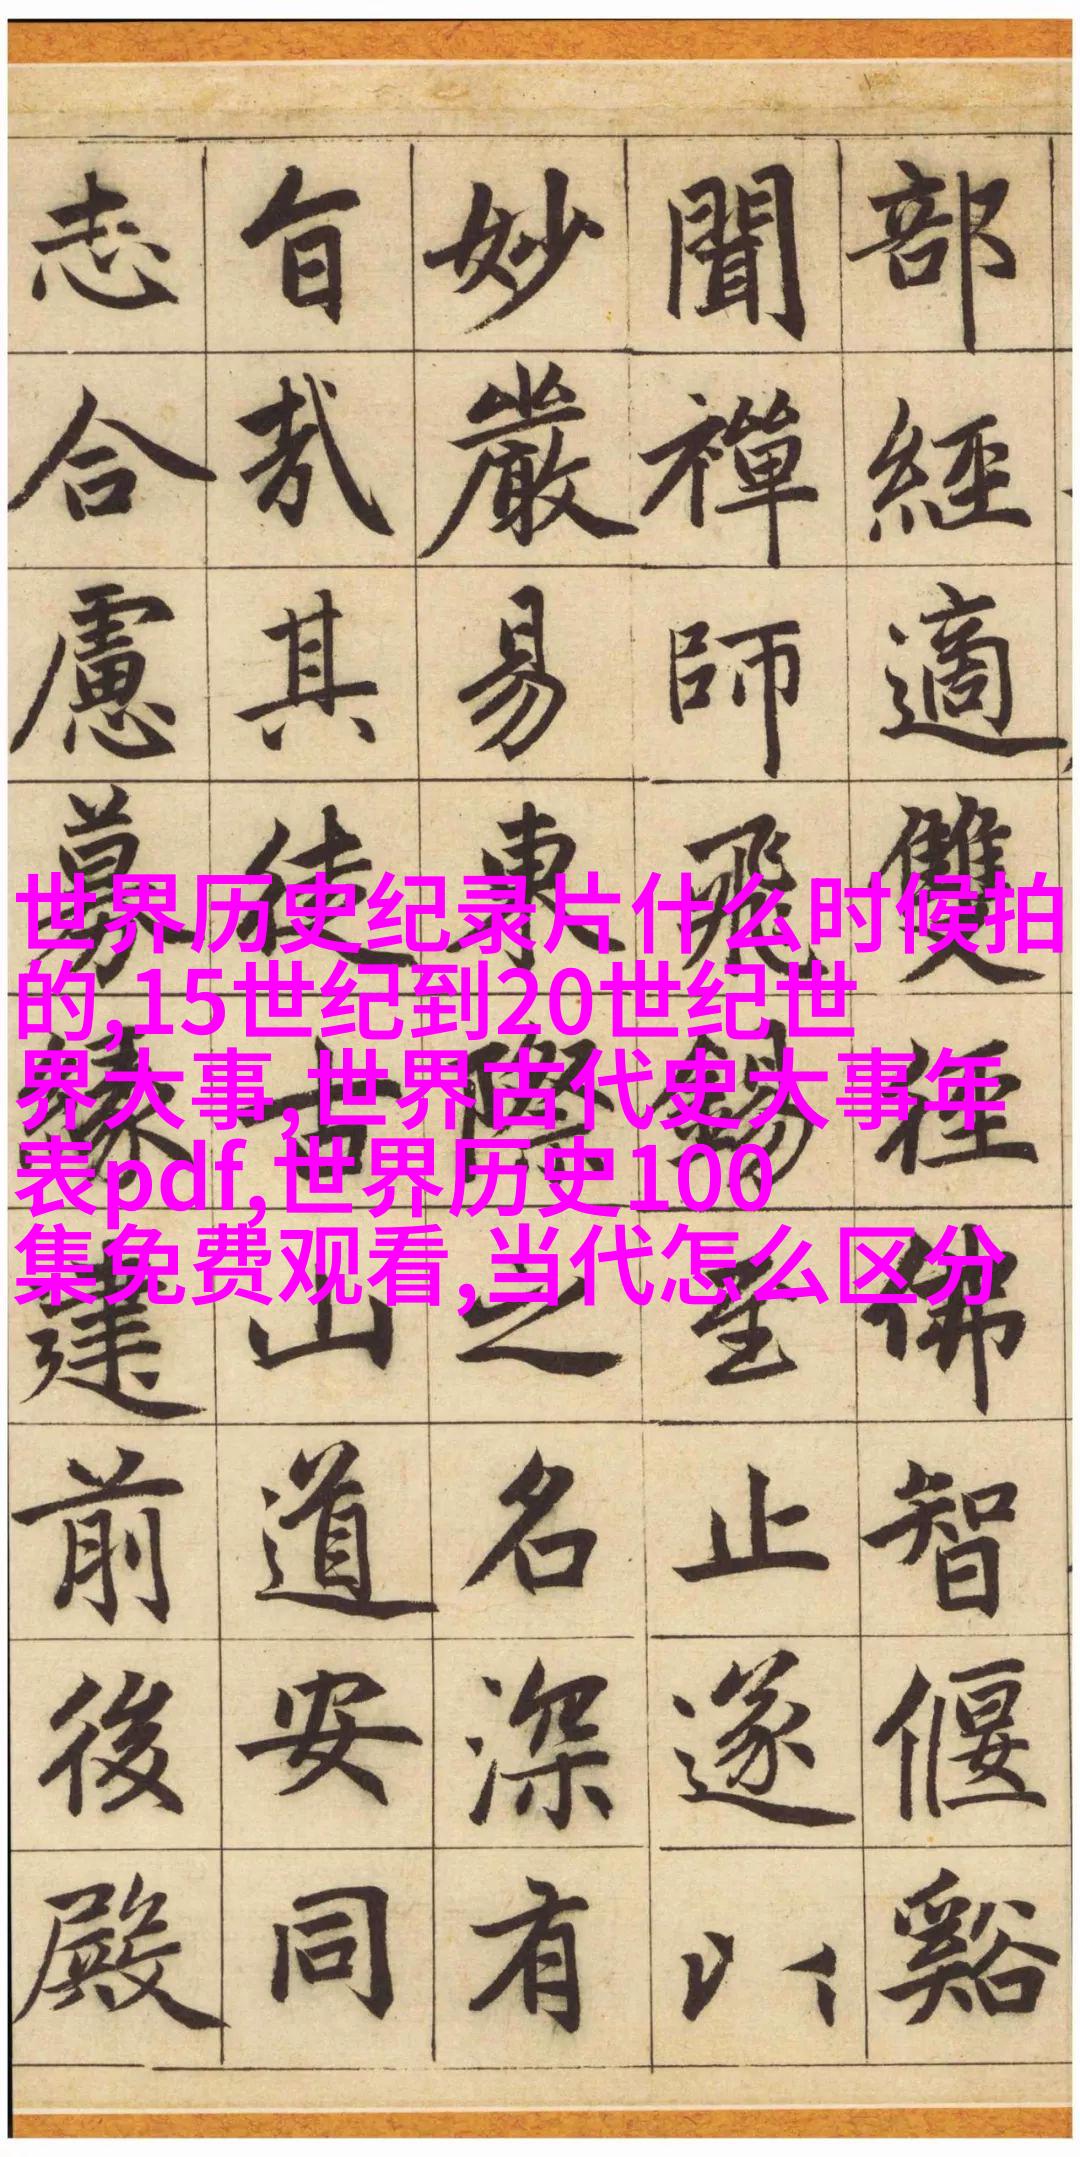 部經適雙徑佛智偃谿
聞禪師飛錫至止遂以
妙嚴易東際之名深有
旨哉其徒古山道安同
志合慮募緣建前後殿
世界历史纪录片什么时候拍
的,15世纪到20世纪世
界大事,世界古代史大事年
表pdf,世界历史100
集免费观看,当代怎么区分